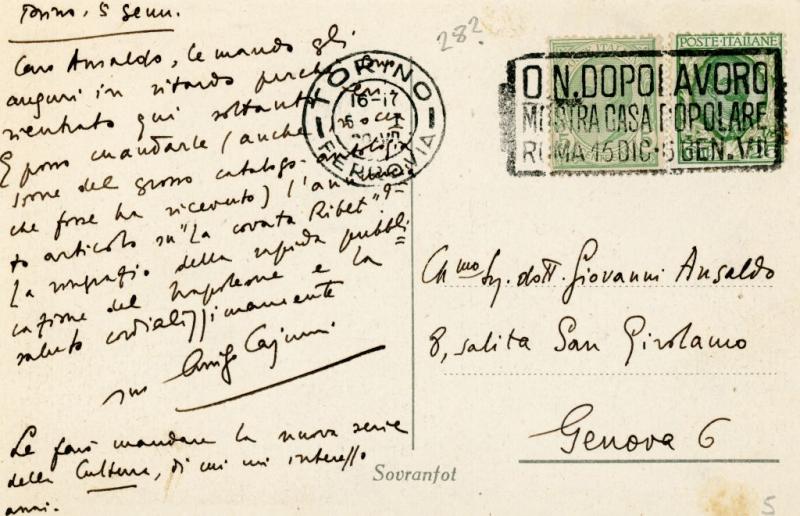 Torino, 5 Genn.
Caro Ansaldo, le mando gli
auguri in ritardo perché son
rientrato qui soltanto
E posso mandarle (anche
del grosso catalogo
che forse ha ricevuto) l'annuncia=
to articolo su "La covata Ribet".
La ringrazio della rapida pubbli=
cazione del Napoleone e la
saluto cordialissimamente
suo Arrigo Cajumi
Le farò mandare la nuova serie
della Cultura, di cui mi interesso
282
TORINO
16-17
FERROVIA
POSTE·ITALIANE
O.N.DOPOLAVORO
MOSTRA CASA POPOLARE
ROMA 15 DIC·5 GEN.VII
Ch.mo Sig. dott. Giovanni Ansaldo
8, salita San Girolamo
Genova 6
Sovrantot
5